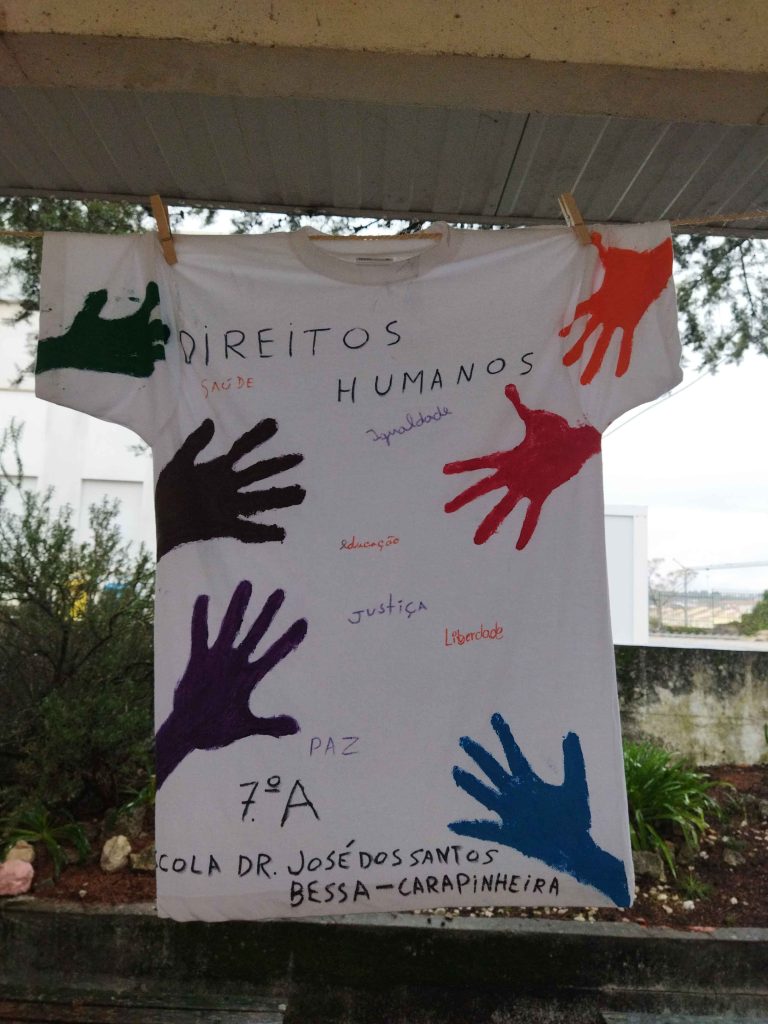 DIREITOS
HUMANOS
SAÚDE
Igualdade
educação
JUSTIÇA
Liberdade
PAZ
7.º A
COLA DR. JOSÉ DOS SANTOS
BESSA - CARAPINHEIRA